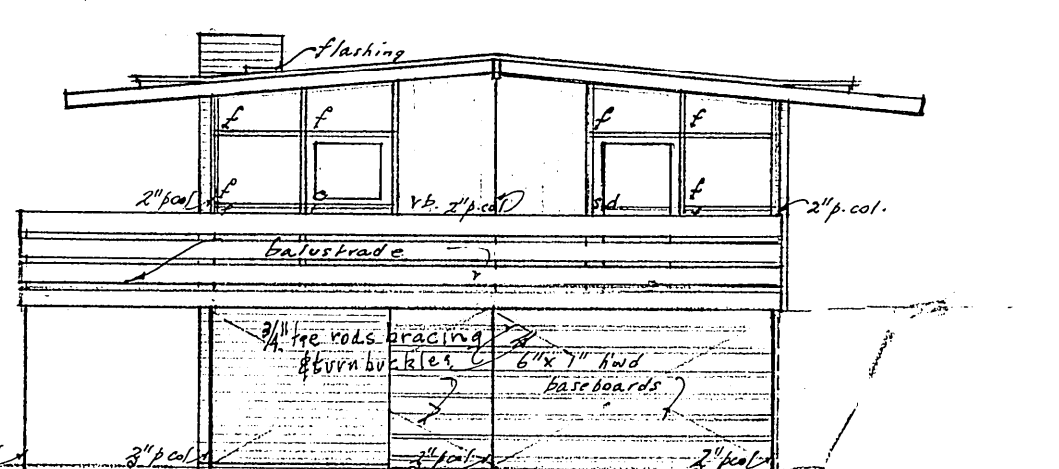 flashing
f f f f
2"pcol f o v.b. 2"p.col s.d. f 2"p.col.
balustrade
r
3/4" tge rods bracing
& turnbuckles 6"x 1" hwd
baseboards
3"pcol 2"pcol 2"pcol